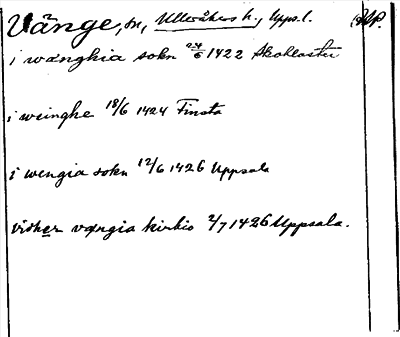 Vänge, sn, Ulleråkers h., Upps. l. Up.
i wænghia sokn 24/6 1422 Skokloster
i weinghe 18/6 1424 Finsta
i wengia sokn 12/6 1426 Uppsala
vidher vængia kirkio 2/7 1426 Uppsala.